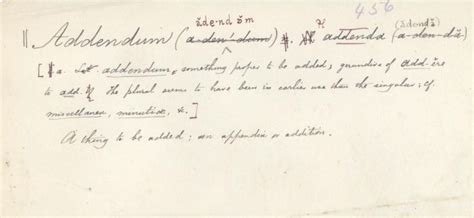 456
ădendŏm
‖ Addendum (a-den'dum) Pl. addenda (a-den-dă) (ădendă)
[a. L. addendum, something proper to be added, gerundive of add-ĕre
to add. The plural seems to have been in earlier use than the singular; cf.
miscellanea, minutiæ, &.]
A thing to be added; an appendix or addition.